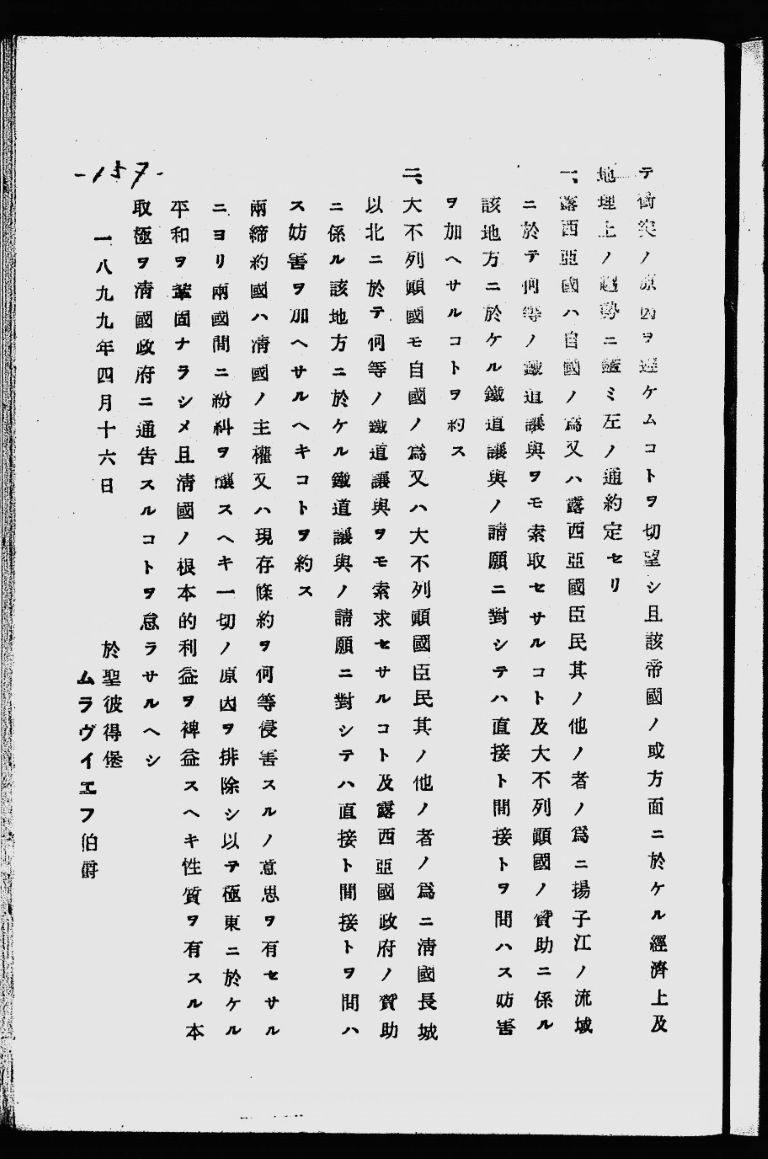 テ衝突ノ原因ヲ避ケムコトヲ切望シ且該帝國ノ或方面ニ於ケル經濟上及
地理上ノ趨勢ニ鑑ミ左ノ通約定セリ
一、露西亞國ハ自國ノ爲又ハ露西亞國臣民其ノ他ノ者ノ爲ニ揚子江ノ流域
ニ於テ何等ノ鐵道讓與ヲモ索取セサルコト及大不列顚國ノ賛助ニ係ル
該地方ニ於ケル鐵道讓與ノ請願ニ對シテハ直接ト間接トヲ問ハス妨害
ヲ加ヘサルコトヲ約ス
二、大不列顚國モ自國ノ爲又ハ大不列顚國臣民其ノ他ノ者ノ爲ニ淸國長城
以北ニ於テ何等ノ鐵道讓與ヲモ索求セサルコト及露西亞國政府ノ賛助
ニ係ル該地方ニ於ケル鐵道讓與ノ請願ニ對シテハ直接ト間接トヲ問ハ
ス妨害ヲ加ヘサルヘキコトヲ約ス
兩締約國ハ淸國ノ主權又ハ現存條約ヲ何等侵害スルノ意思ヲ有セサル
ニヨリ兩國間ニ紛糾ヲ釀スヘキ一切ノ原因ヲ排除シ以テ極東ニ於ケル
平和ヲ鞏固ナラシメ且淸國ノ根本的利益ヲ裨益スヘキ性質ヲ有スル本
取極ヲ淸國政府ニ通告スルコトヲ怠ラサルヘシ
一八九九年四月十六日
於聖彼得堡
ムラヴイエフ伯爵
-157-